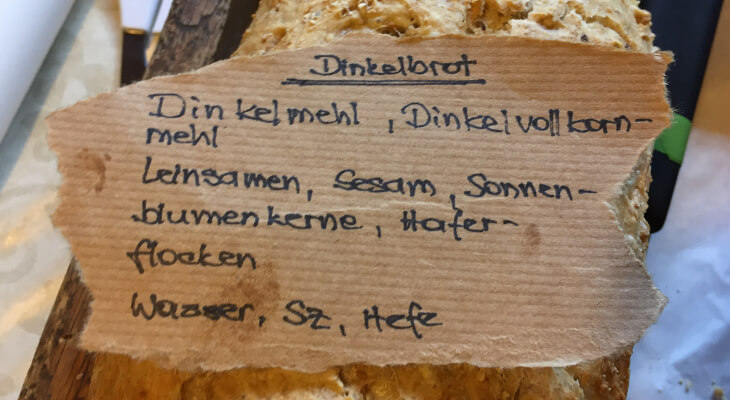 Dinkelbrot
Dinkelmehl, Dinkelvollkorn-
mehl
Leinsamen, Sesam, Sonnen-
blumenkerne, Hafer-
flocken
Wasser, Sz, Hefe